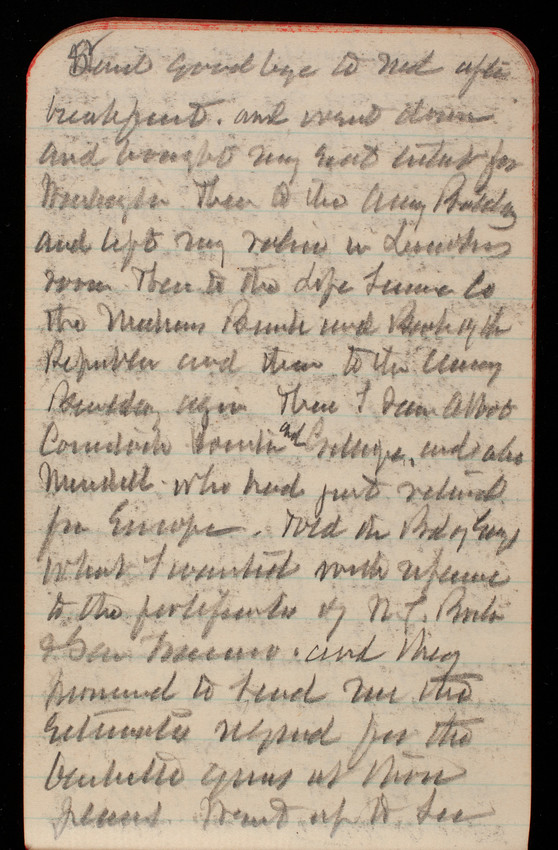 Said goodbye to Ned after
breakfast. and went down
and bought my seat ticket for
Washington Then to the Army Building
and left my valise in
room Then to the Life Insurance Co
the Mechanics Bank and Bank of the
Republic and then to the Army
Building again There I saw Abbot
Comstock and Gillespie, and also
Mendell who had just returned
from Europe. Told the Bd of Engs
What I wanted with reference
to the fortifications of N.Y. Boston
& San Francisco. and they
promised to send me the
estimates required for the
barbette guns at those
places. Went up to see